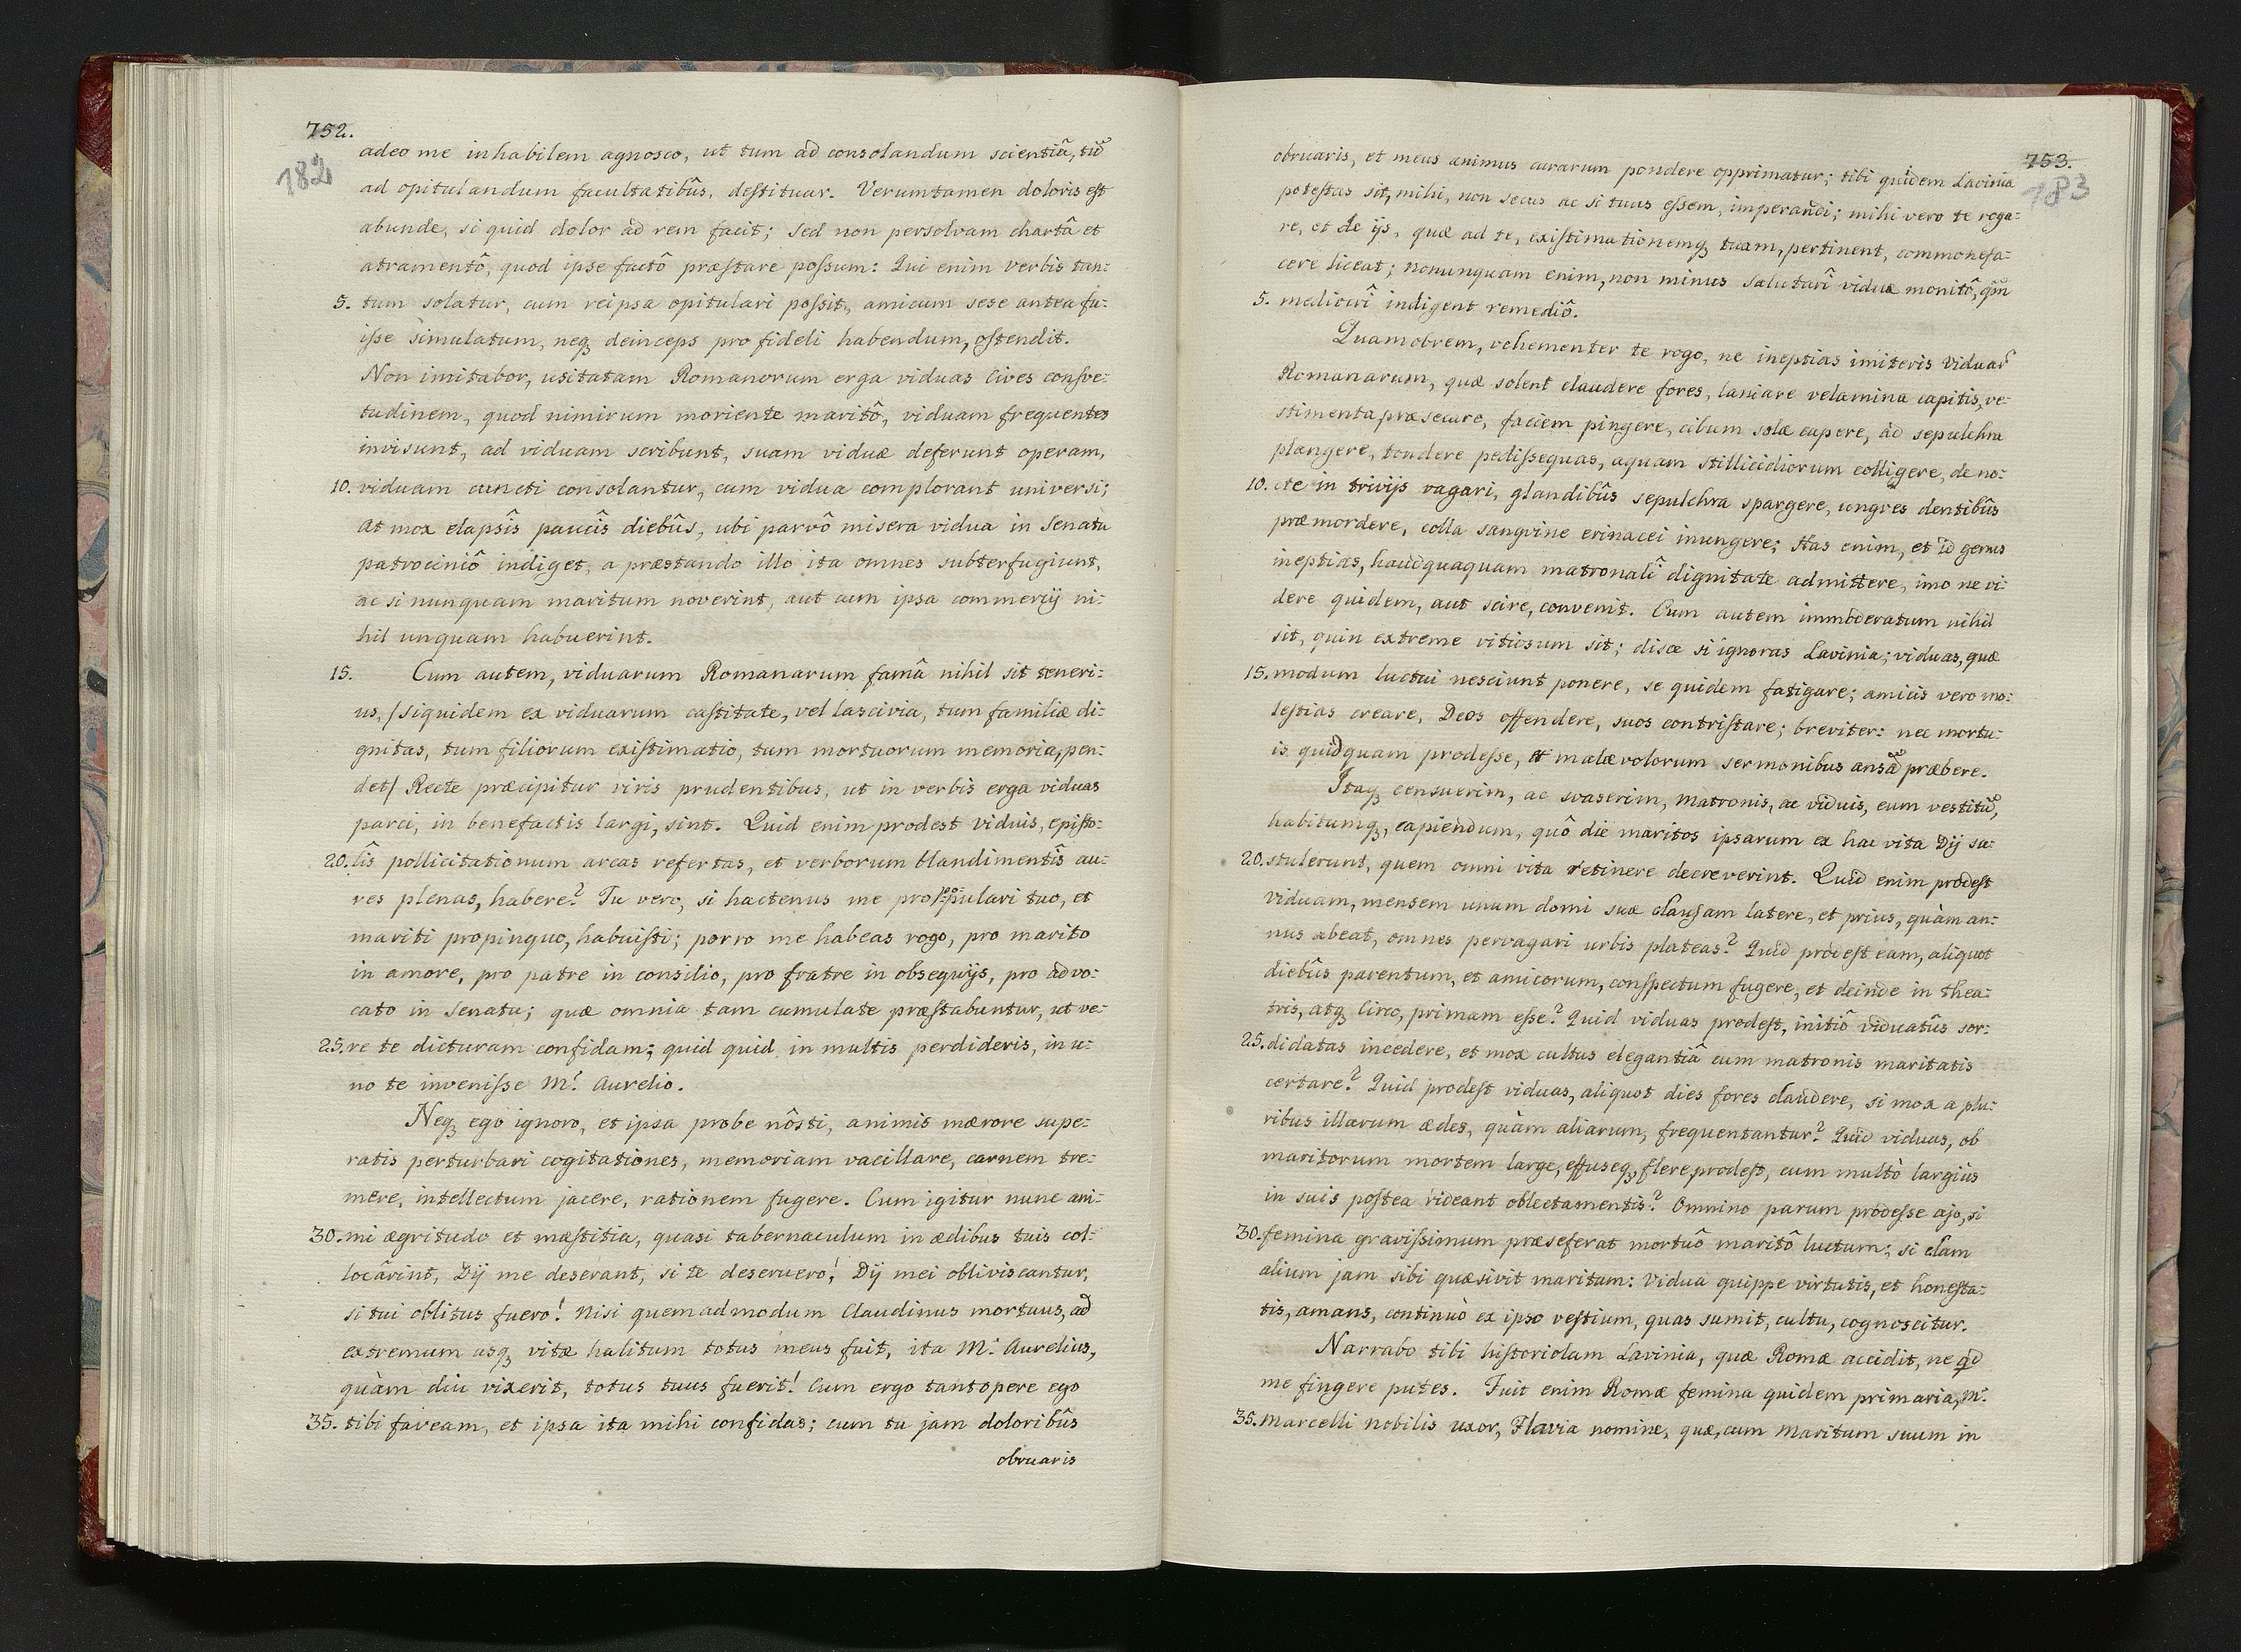 752.
182
adeo me inhabilem agnosco, ut tum ad consolandum scientiâ, tũ
ad opitulandum facultatibûs, destituar. Verumtamen doloris est
abunde, si quid dolor ad rem facit; sed non persolvam chartâ et
atramentô, quod ipse factô præstare possum: Qui enim verbis tan:
5. tum solatur, cum reipsa opitulari possit, amicum sese antea fu:
isse simulatum, neq; deinceps pro fideli habendum, ostendit.
Non imitabor, usitatam Romanorum erga viduas cives consve:
tudinem, quod nimirum moriente maritô, viduam frequentes
invisunt, ad viduam scribunt, suam viduæ deferunt operam,
10. viduam cuncti consolantur, cum vidua complorant universi;
at mox elapsîs paucîs diebûs, ubi parvô misera vidua in Senatu
patrociniô indiget, a præstando illo ita omnes subterfugiunt,
ac si nunquam maritum noverint, aut cum ipsa commercij ni:
hil unquam habuerint.
15. Cum autem, viduarum Romanarum famâ nihil sit teneri:
us, /siquidem ex viduarum castitate, vel lascivia, tum familiæ di:
gnitas, tum filiorum existimatio, tum mortuorum memoria, pen:
det/ Recte præcipitur viris prudentibus, ut in verbis erga viduas
parci, in benefactis largi, sint. Quid enim prodest viduis, episto:
20. lîs pollicitationum arcas refertas, et verborum blandimentîs au:
res plenas, habere? Tu vero, si hactenus me pro po:pulari tuo, et
mariti propinquo, habuisti; porro me habeas rogo, pro marito
in amore, pro patre in consilio, pro fratre in obsequijs, pro advo:
cato in Senatu; quæ omnia tam cumulate præstabuntur, ut ve:
25. re te dicturam confidam; quid quid in multis perdideris, in u:
no te invenisse M: Aurelio.
Neq; ego ignoro, et ipsa probe nôsti, animis mærore supe:
ratis perturbari cogitationes, memoriam vacillare, carnem tre:
mere, intellectum jacere, rationem fugere. Cum igitur nunc ani:
30. mi ægritudo et mæstitia, quasi tabernaculum in ædibus tuis col:
locârint, Dij me deserant, si te deseruero! Dij mei obliviscantur,
si tui oblitus fuero! Nisi quemadmodum Claudinus mortuus, ad
extremum usq; vitæ halitum totus meus fuit, ita M: Aurelius,
quàm diu vixerit, totus tuus fuerit! Cum ergo tantopere ego
35. tibi faveam, et ipsa ita mihi confidas; cum tu jam doloribûs
obruaris
753.
183
obruaris, et meus animus curarum pondere opprimatur; tibi quidem Lavinia
potestas sit, mihi, non secus ac si tuus essem, imperandi; mihi vero te roga:
re, et de ijs, quæ ad te, existimationemq; tuam, pertinent, commonefa:
cere liceat; nonunquam enim, non minus salutarî viduæ monitô, qm̃
5. mediocrî indigent remediô.
Quamobrem, vehementer te rogo, ne ineptias imiteris viduar̃
Romanarum, quæ solent claudere fores, laniare velamina capitis, ve:
stimenta præsecare, faciem pingere, cibum solæ capere, ad sepulchra
plangere, tondere pedissequas, aquam stillicidiorum colligere, de no:
10. cte in trivijs vagari, glandibûs sepulchra spargere, ungves dentibûs
præmordere, colla sangvine erinacei inungere; Has enim, et id genus
ineptias, haudquaquam matronalî dignitate admittere, imo ne vi:
dere quidem, aut scire, convenit. Cum autem immoderatum nihil
sit, quin extreme vitiosum sit; disce si ignoras Lavinia; viduas, quæ
15. modum luctui nesciunt ponere, se quidem fatigare; amicis vero mo:
lestias creare, Deos offendere, suos contristare; breviter: nec mortu:
is quidquam prodesse, et malævolorum sermonibus ansã præbere.
Itaq; censuerim, ac svaserim, Matronis, ac viduis, eum vestitũ,
habitumq;, capiendum, quô die maritos ipsarum ex hac vita Dij su:
20. stulerunt, quem omni vita retinere decreverint. Quid enim prodest
viduam, mensem unum domi suæ clausam latere, et prius, quàm an:
nus abeat, omnes pervagari urbis plateas? Quid prodest eam, aliquot
diebûs parentum, et amicorum, conspectum fugere, et deinde in thea:
tris, atq; Circo, primam esse? Quid viduas prodest, initiô viduatûs sor:
25. didatas incedere, et mox cultus elegantiâ cum matronis maritatis
certare? Quid prodest viduas, aliquot dies fores claudere, si mox a plu:
ribus illarum ædes, quàm aliarum, frequentantur? Quid viduas, ob
maritorum mortem large, effuseq; flere, prodest, cum multò largius
in suis postea rideant oblectamentis? Omnino parum prodesse ajo, si
30. femina gravissimum præseferat mortuô maritô luctum; si clam
alium jam sibi quæsivit maritum: Vidua quippe virtutis, et honesta:
tis, amans, continuò ex ipso vestium, quas sumit, cultu, cognoscitur.
Narrabo tibi historiolam Lavinia, quæ Romæ accidit, ne qd
me fingere putes. Fuit enim Romæ femina quidem primaria, M:
35. Marcelli nobilis uxor, Flavia nomine, quæ, cum Maritum suum in